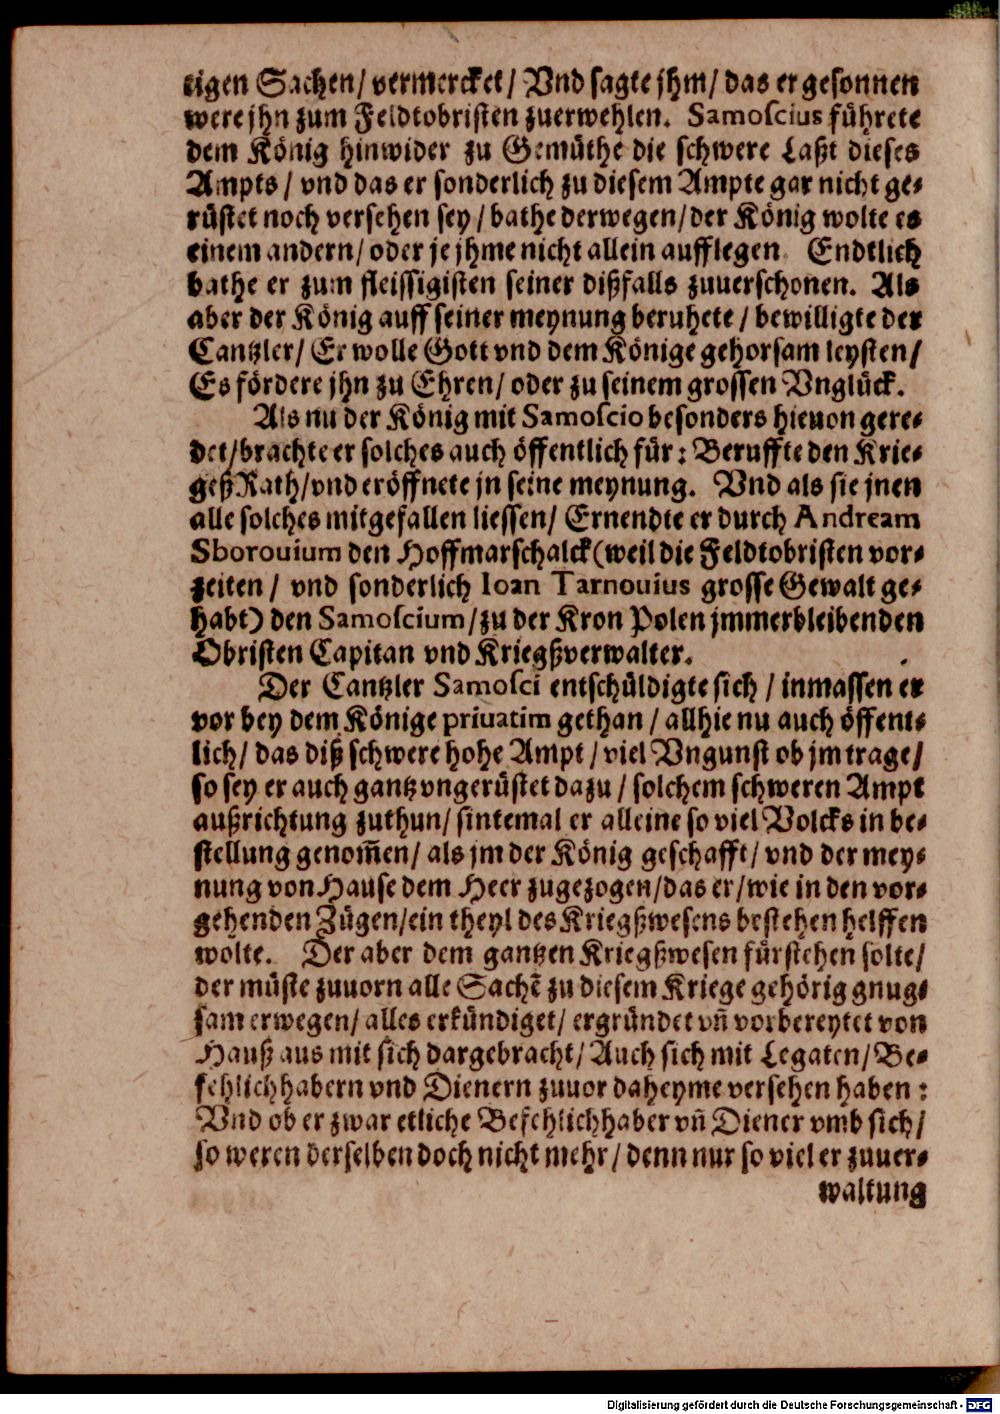 tigen Sachen/ vermercket/ Vnd sagte jhm/ das er gesonnen
were jhn zum Feldtobristen zuerwehlen. Samoscius führete
dem König hinwider zu Gemüthe die schwere Laßt dieses
Ampts/ vnd das er sonderlich zu diesem Ampte gar nicht ge-
rüstet noch versehen sey/ bathe derwegen/ der König wolte es
einem andern/ oder je jhme nicht allein aufflegen. Endtlich
bathe er zum fleissigisten seiner dißfalls zuuerschonen. Als
aber der König auff seiner meynung beruhete/ bewilligte der
Cantzler/ Er wolle Gott vnd dem Könige gehorsam leysten/
Es fördere jhn zu Ehren/ oder zu seinem grossen Vnglück.
Als nu der König mit Samoscio besonders hieuon gere-
det/ brachte er solches auch öffentlich für: Beruffte den Krie-
geß Rath/ vnd eröffnete jn seine meynung. Vnd als sie jnen
alle solches mitgefallen liessen/ Ernendte er durch Andream
Sborouium den Hoffmarschalck (weil die Feldtobristen vor-
zeiten/ vnd sonderlich Ioan Tarnouius grosse Gewalt ge-
habt) den Samoscium/ zu der Kron Polen jmmerbleibenden
Obristen Capitan vnd Kriegßverwalter.
Der Cantzler Samosci entschüldigte sich/ inmassen er
vor bey dem Könige priuatim gethan/ allhie nu auch öffent-
lich/ das diß schwere hohe Ampt/ viel Vngunst ob jm trage/
so sey er auch gantz vngerüstet dazu/ solchem schweren Ampt
außrichtung zuthun/ sintemal er alleine so viel Volcks in be-
stellung genom̃en/ als jm der König geschafft/ vnd der mey-
nung von Hause dem Heer zugezogen/ das er/ wie in den vor-
gehenden Zügen/ ein theyl des Kriegßwesens bestehen helffen
wolte. Der aber dem gantzen Kriegßwesen fürstehen solte/
der müste zuuorn alle Sachẽ zu diesem Kriege gehörig gnug-
sam erwegen/ alles erkündiget/ ergründet vñ vorbereytet von
Hauß aus mit sich dargebracht/ Auch sich mit Legaten/ Be-
fehlichhabern vnd Dienern zuuor daheyme versehen haben:
Vnd ob er zwar etliche Befehlichhaber vñ Diener vmb sich/
so weren derselben doch nicht mehr/ denn nur so viel er zuuer-
waltung
Digitalisierung gefördert durch die Deutsche Forschungsgemeinschaft - DFG